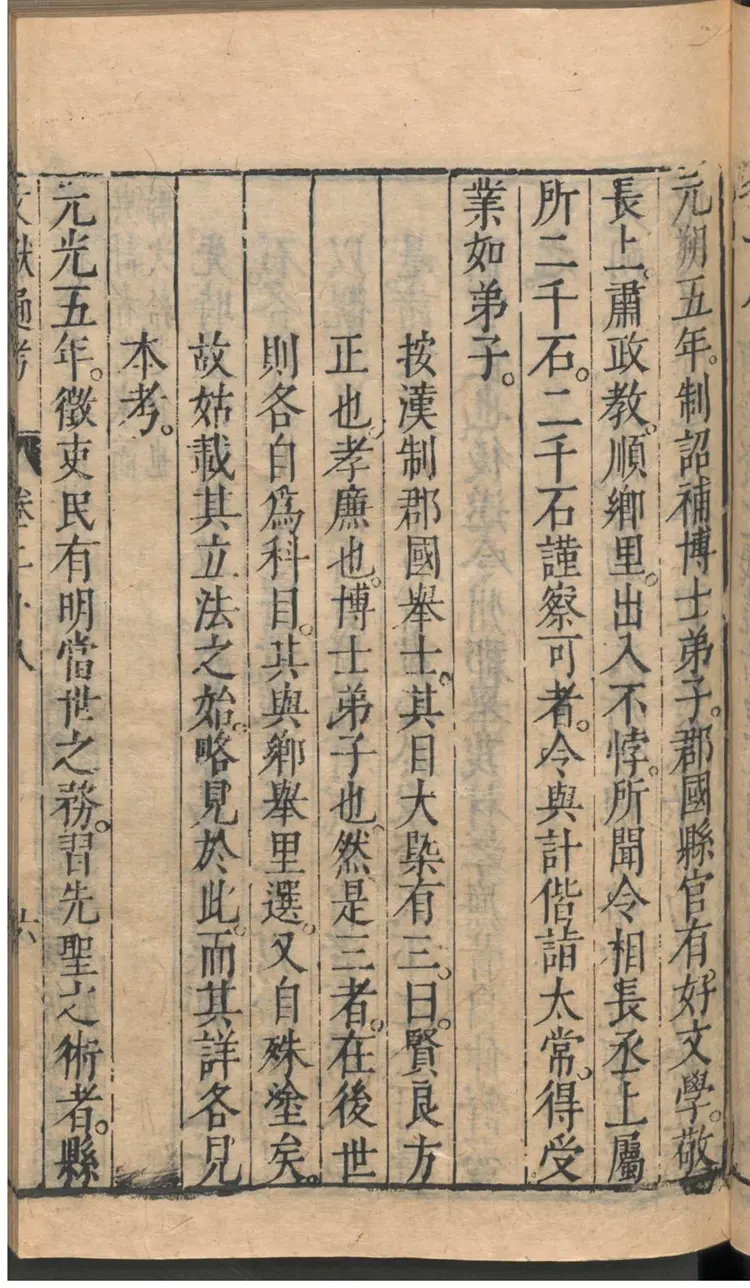 元朔五年。制詔補博士弟子。郡國縣官有。好文學。敬
長上。肅政教。順鄉里。出入不悖。所聞令相長丞上屬
所二千石。二千石謹察可者。令與計偕詣太常。得受
業如弟子。
按漢制郡國舉士。其目大槩有三。曰。賢良方
正也。孝廉也。博士弟子也。然是三者。在後世
則各自爲科目。其與鄉舉里選。又自殊塗矣。
故姑載其立法之始。略見於此。而其詳各見
本考。
元光五年。徵吏民有明當世之務。習先聖之術者。縣
文獻通考 卷二十八 六